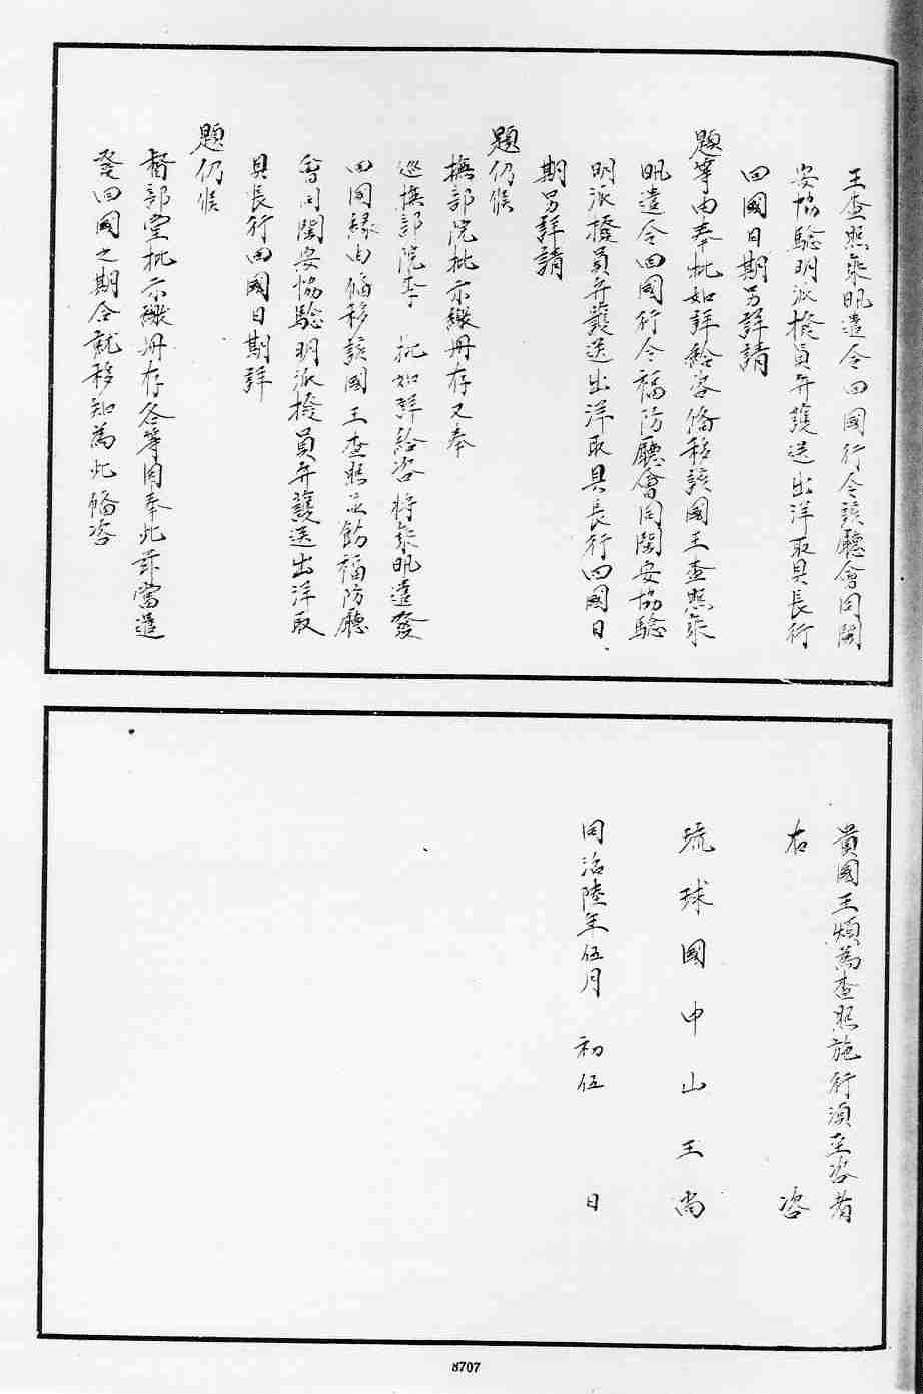 王查照乘帆遣令回國行令該廳會同閩
安協驗明派撥員弁護送出洋取具長行
回國日期另詳請
題等由奉批如詳給咨俻移該國王查照乘
帆遣令回國行令福防廳會同閩安協驗
明派撥員弁護送出洋取具長行回國日
期另詳請
題仍候
撫部院批示繳册存又奉
巡撫部院李 批如詳給咨將乘帆遣發
回國緣由俻移該國王查照並飭福防廳
會同閩安協驗明派撥員弁護送出洋取
具長行回國日期詳
題仍候
督部堂批示繳册存各等因奉此茲當遣
發回國之期合就移知為此俻咨
貴國王煩為查照施行須至咨者
右 咨
琉球國中山王尚
同治陸年伍月 初伍 日
8707